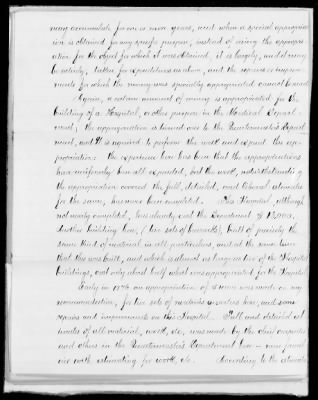 may accumulate for one or more years, and when a special appropriat-
ion is obtained for any specific purpose, instead of using the appropri-
ation for the object for which it was obtained, it is largely, and it may
be entirely, taken for expenditures as above, and the repairs or improve-
ments for which the money was specially appropriated cannot be made.
Again, a certain amount of money is appropriated for the
building of a Hospital, or other purpose in the Medical Depart-
ment; the appropriation is turned over to the Quartermaster's Depart-
ment, and it is required to perform the work and expend the ap-
propriation: the experience has been that the appropriations
have uniformly been all expended, but the work, notwithstanding
the appropriation covered the full, detailed, and liberal estimates
for the same, has never been completed. This Hospital, although
not nearly completed, has already cost the Department $
Another building here, (two sets of barracks), built of precisely the
same kind of material in all particulars, and at the same time
that this was built, and which is almost as large as two of the Hospital
buildings, cost only about half what was appropriated for the Hospital.
Early in 1876 an appropriation of was made on my
recommendation, for two sets of matron's quarters here, and some
repairs and improvements on this Hospital. Full and detailed es-
timates of all material, work, etc, was made by the chief carpenter
and others in the Quartermaster's Department here
with estimating for work, etc. According to the estimate